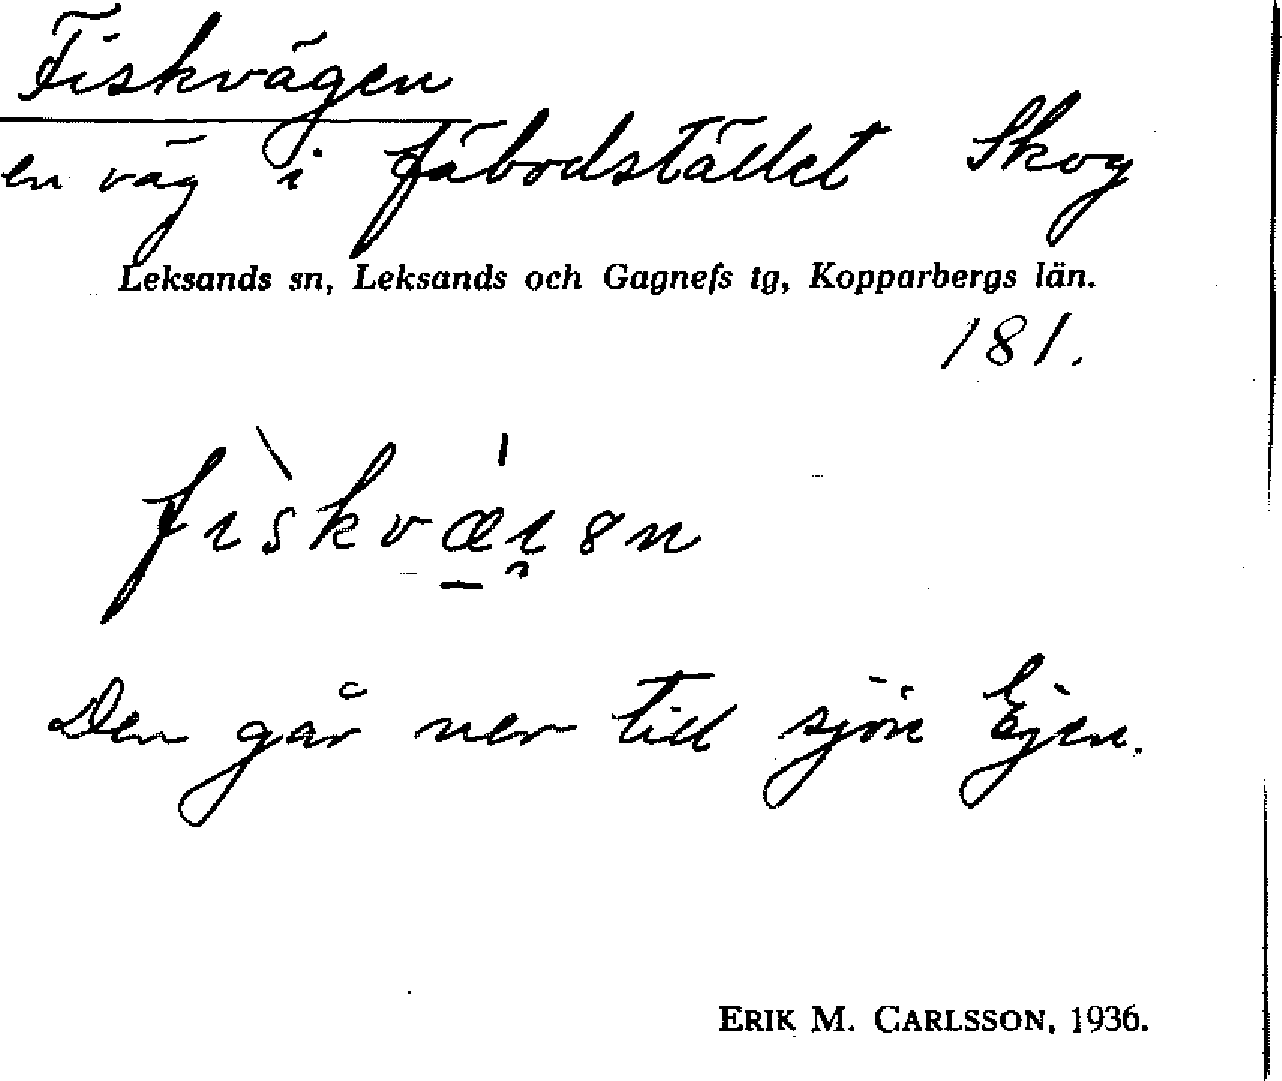 Fiskvägen
en väg i fäbodstället Skog
Leksands sn, Leksands och Gagnefs tg, Kopparbergs län.
181.
Den går ner till sjön Ejen.
ERIK M. CARLSSON, 1936.